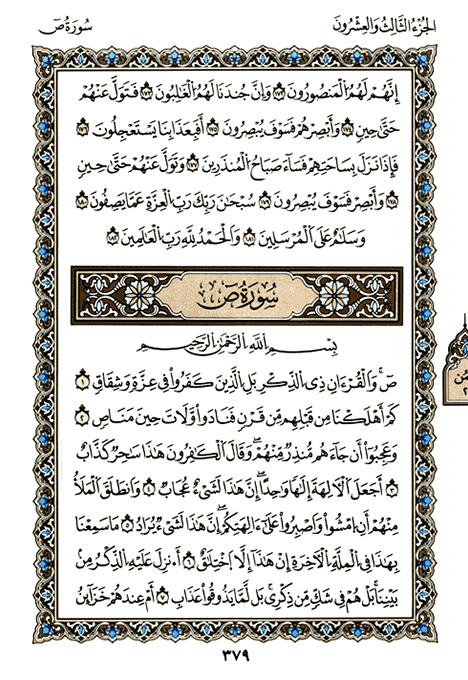 الجُزْءُ الثَّالِثُ وَالعِشْرُونَ
سُورَةُ صٓ
إِنَّهُمْ لَهُمُ الْمَنصُورُونَ ١٧٢ وَإِنَّ جُندَنَا لَهُمُ الْغَالِبُونَ ١٧٣ فَتَوَلَّ عَنْهُمْ
حَتَّىٰ حِينٍ ١٧٤ وَأَبْصِرْهُمْ فَسَوْفَ يُبْصِرُونَ ١٧٥ أَفَبِعَذَابِنَا يَسْتَعْجِلُونَ ١٧٦
فَإِذَا نَزَلَ بِسَاحَتِهِمْ فَسَاءَ صَبَاحُ الْمُنذَرِينَ ١٧٧ وَتَوَلَّ عَنْهُمْ حَتَّىٰ حِينٍ
١٧٨ وَأَبْصِرْ فَسَوْفَ يُبْصِرُونَ ١٧٩ سُبْحَانَ رَبِّكَ رَبِّ الْعِزَّةِ عَمَّا يَصِفُونَ ١٨٠
وَسَلَامٌ عَلَى الْمُرْسَلِينَ ١٨١ وَالْحَمْدُ لِلَّهِ رَبِّ الْعَالَمِينَ ١٨٢
سُورَةُ صٓ
بِسْمِ اللَّهِ الرَّحْمَٰنِ الرَّحِيمِ
صٓ وَالْقُرْءَانِ ذِي الذِّكْرِ بَلِ الَّذِينَ كَفَرُوا فِي عِزَّةٍ وَشِقَاقٍ ١
كَمْ أَهْلَكْنَا مِن قَبْلِهِم مِّن قَرْنٍ فَنَادَوا وَّلَاتَ حِينَ مَنَاصٍ ٢
وَعَجِبُوا أَن جَاءَهُم مُّنذِرٌ مِّنْهُمْ وَقَالَ الْكَافِرُونَ هَٰذَا سَاحِرٌ كَذَّابٌ
٣ أَجَعَلَ الْآلِهَةَ إِلَٰهًا وَاحِدًا إِنَّ هَٰذَا لَشَيْءٌ عُجَابٌ ٤ وَانطَلَقَ الْمَلَأُ
مِنْهُمْ أَنِ امْشُوا وَاصْبِرُوا عَلَىٰ ءَالِهَتِكُمْ إِنَّ هَٰذَا لَشَيْءٌ يُرَادُ ٥ مَا سَمِعْنَا
بِهَٰذَا فِي الْمِلَّةِ الْآخِرَةِ إِنْ هَٰذَا إِلَّا اخْتِلَاقٌ ٦ أَءُنزِلَ عَلَيْهِ الذِّكْرُ مِن
بَيْنِنَا بَلْ هُمْ فِي شَكٍّ مِّن ذِكْرِي بَل لَّمَّا يَذُوقُوا عَذَابِ ٧ أَمْ عِندَهُمْ خَزَائِنُ
٣٧٩